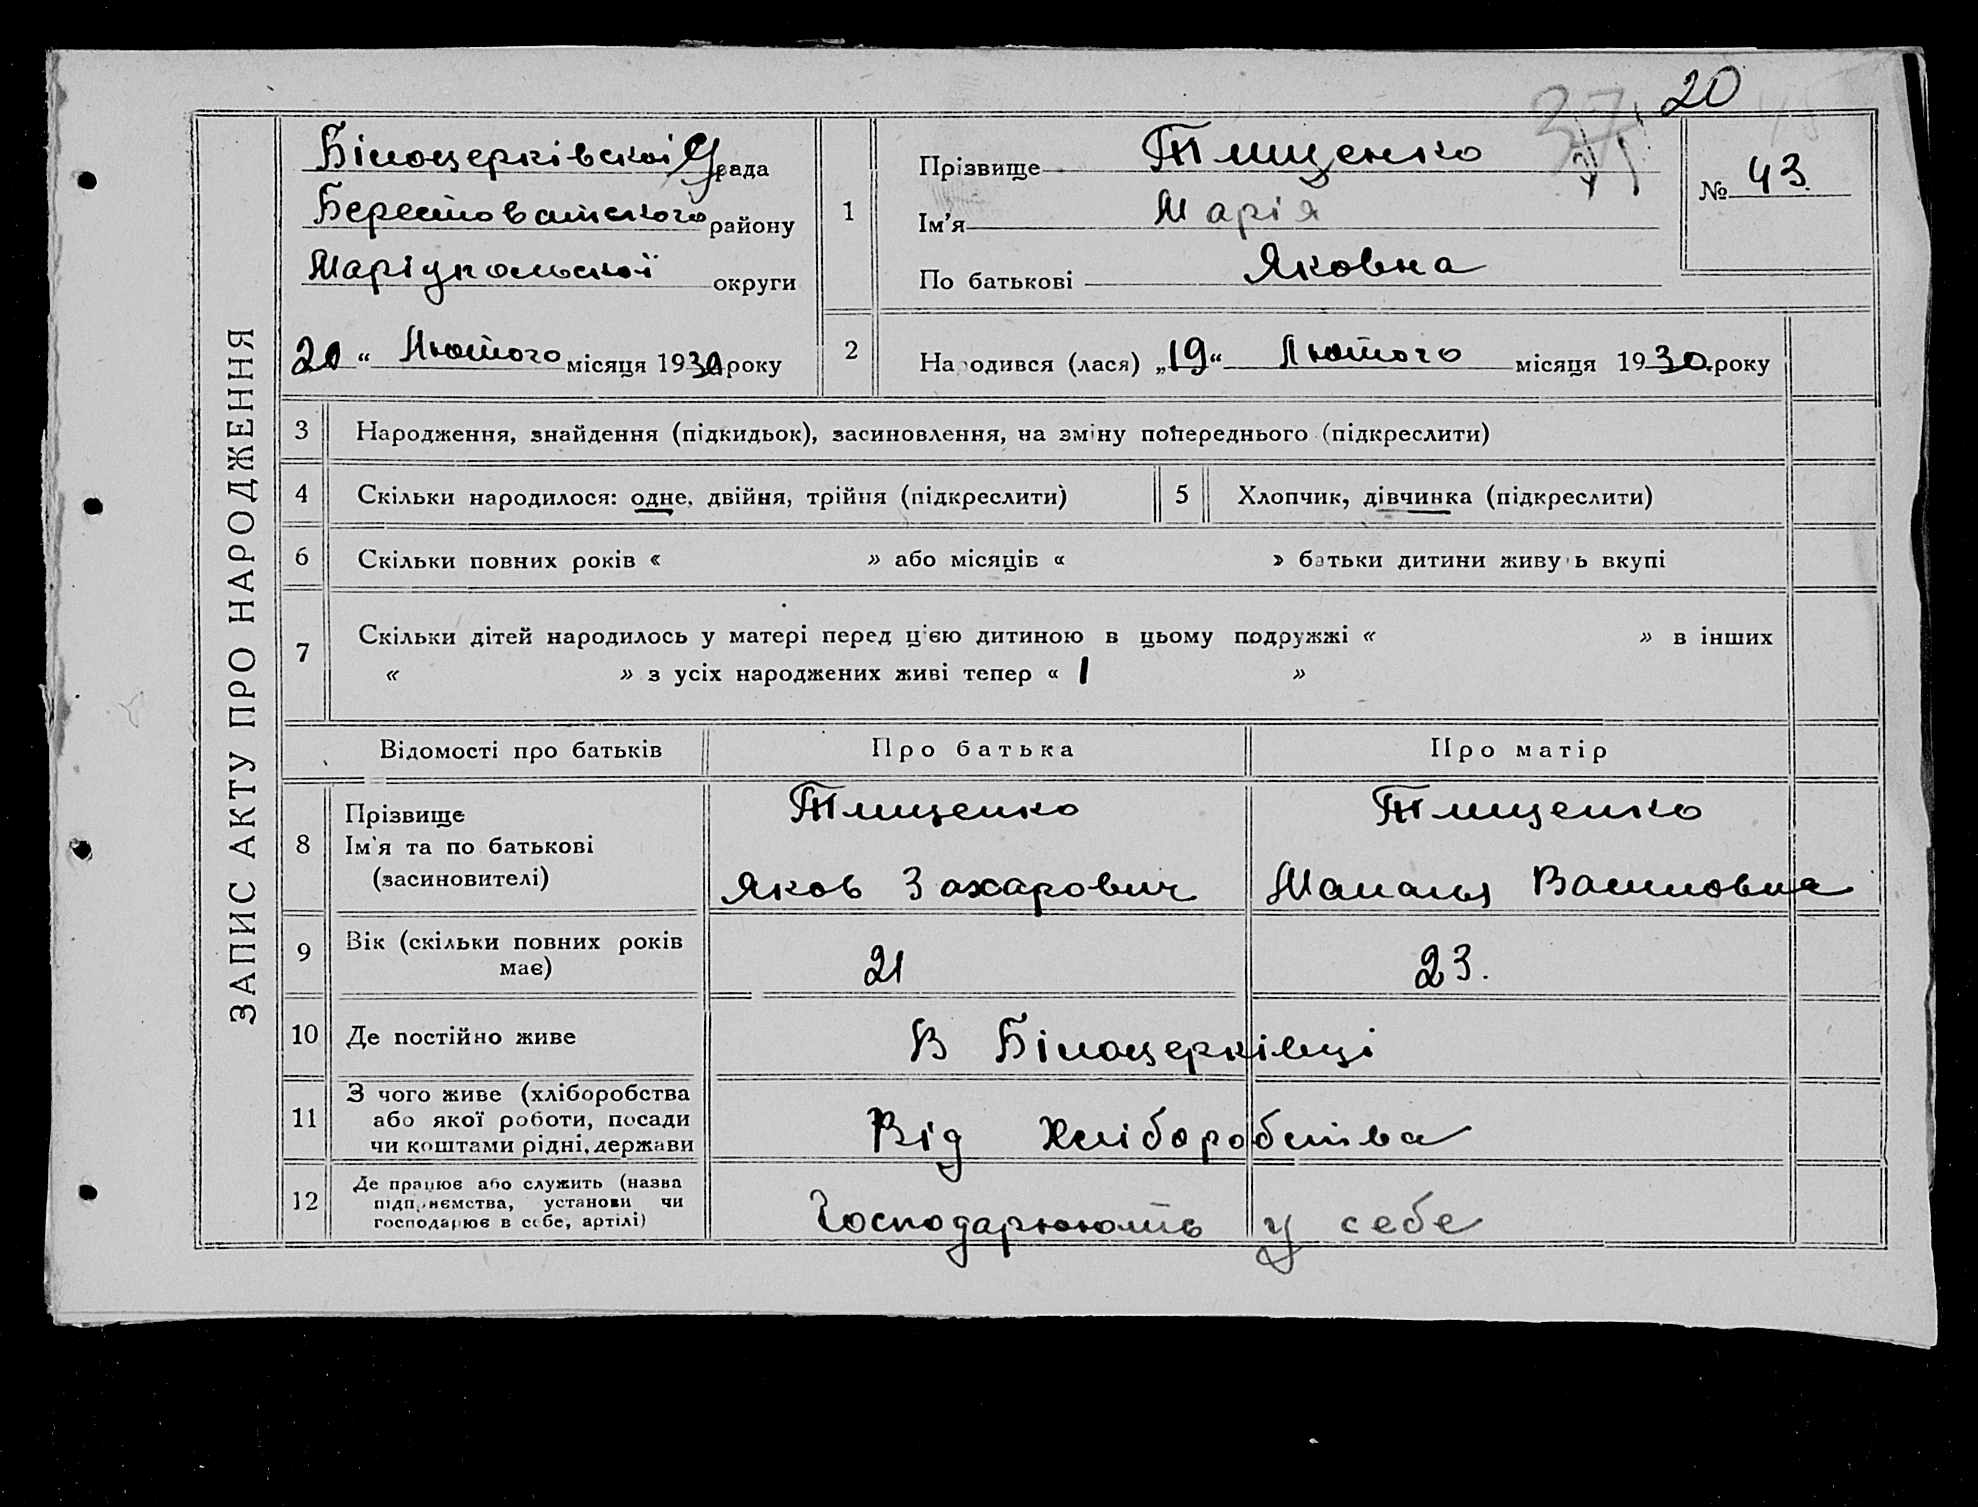 20
ЗАПИС АКТУ ПРО НАРОДЖЕННЯ
Білоцерківскої С/рада
Берестоватського району
Маріупольської округи
20 " Лютого місяця 1930 року
1
Прізвище Тищенко
Ім'я Марія
По батькові Яковна
№ 43
2
Народився (лася) „19“ Лютого місяця 1930 року
3 Народження, знайдення (підкидьок), засиновлення, на зміну попереднього (підкреслити)
4 Скільки народилося: одне, двійня, трійня (підкреслити) 5 Хлопчик, дівчинка (підкреслити)
6 Скільки повних років « » або місяців « » батьки дитини живуть вкупі
7 Скільки дітей народилось у матері перед цією дитиною в цьому подружжі « » в інших
« » з усіх народжених живі тепер « 1 »
Відомості про батьків Про батька Про матір
8 Прізвище Тищенко Тищенко
Ім'я та по батькові
(засиновителі) Яков Захарович Наталья Василовна
9 Вік (скільки повних років
має) 21 23.
10 Де постійно живе В Білоцерківці
11 З чого живе (хліборобства
або якої роботи, посади
чи коштами рідні, держави Від Хліборобства
12 Де працює або служить (назва
підприємства, установи чи
господарює в себе, артілі) Господарюють у себе